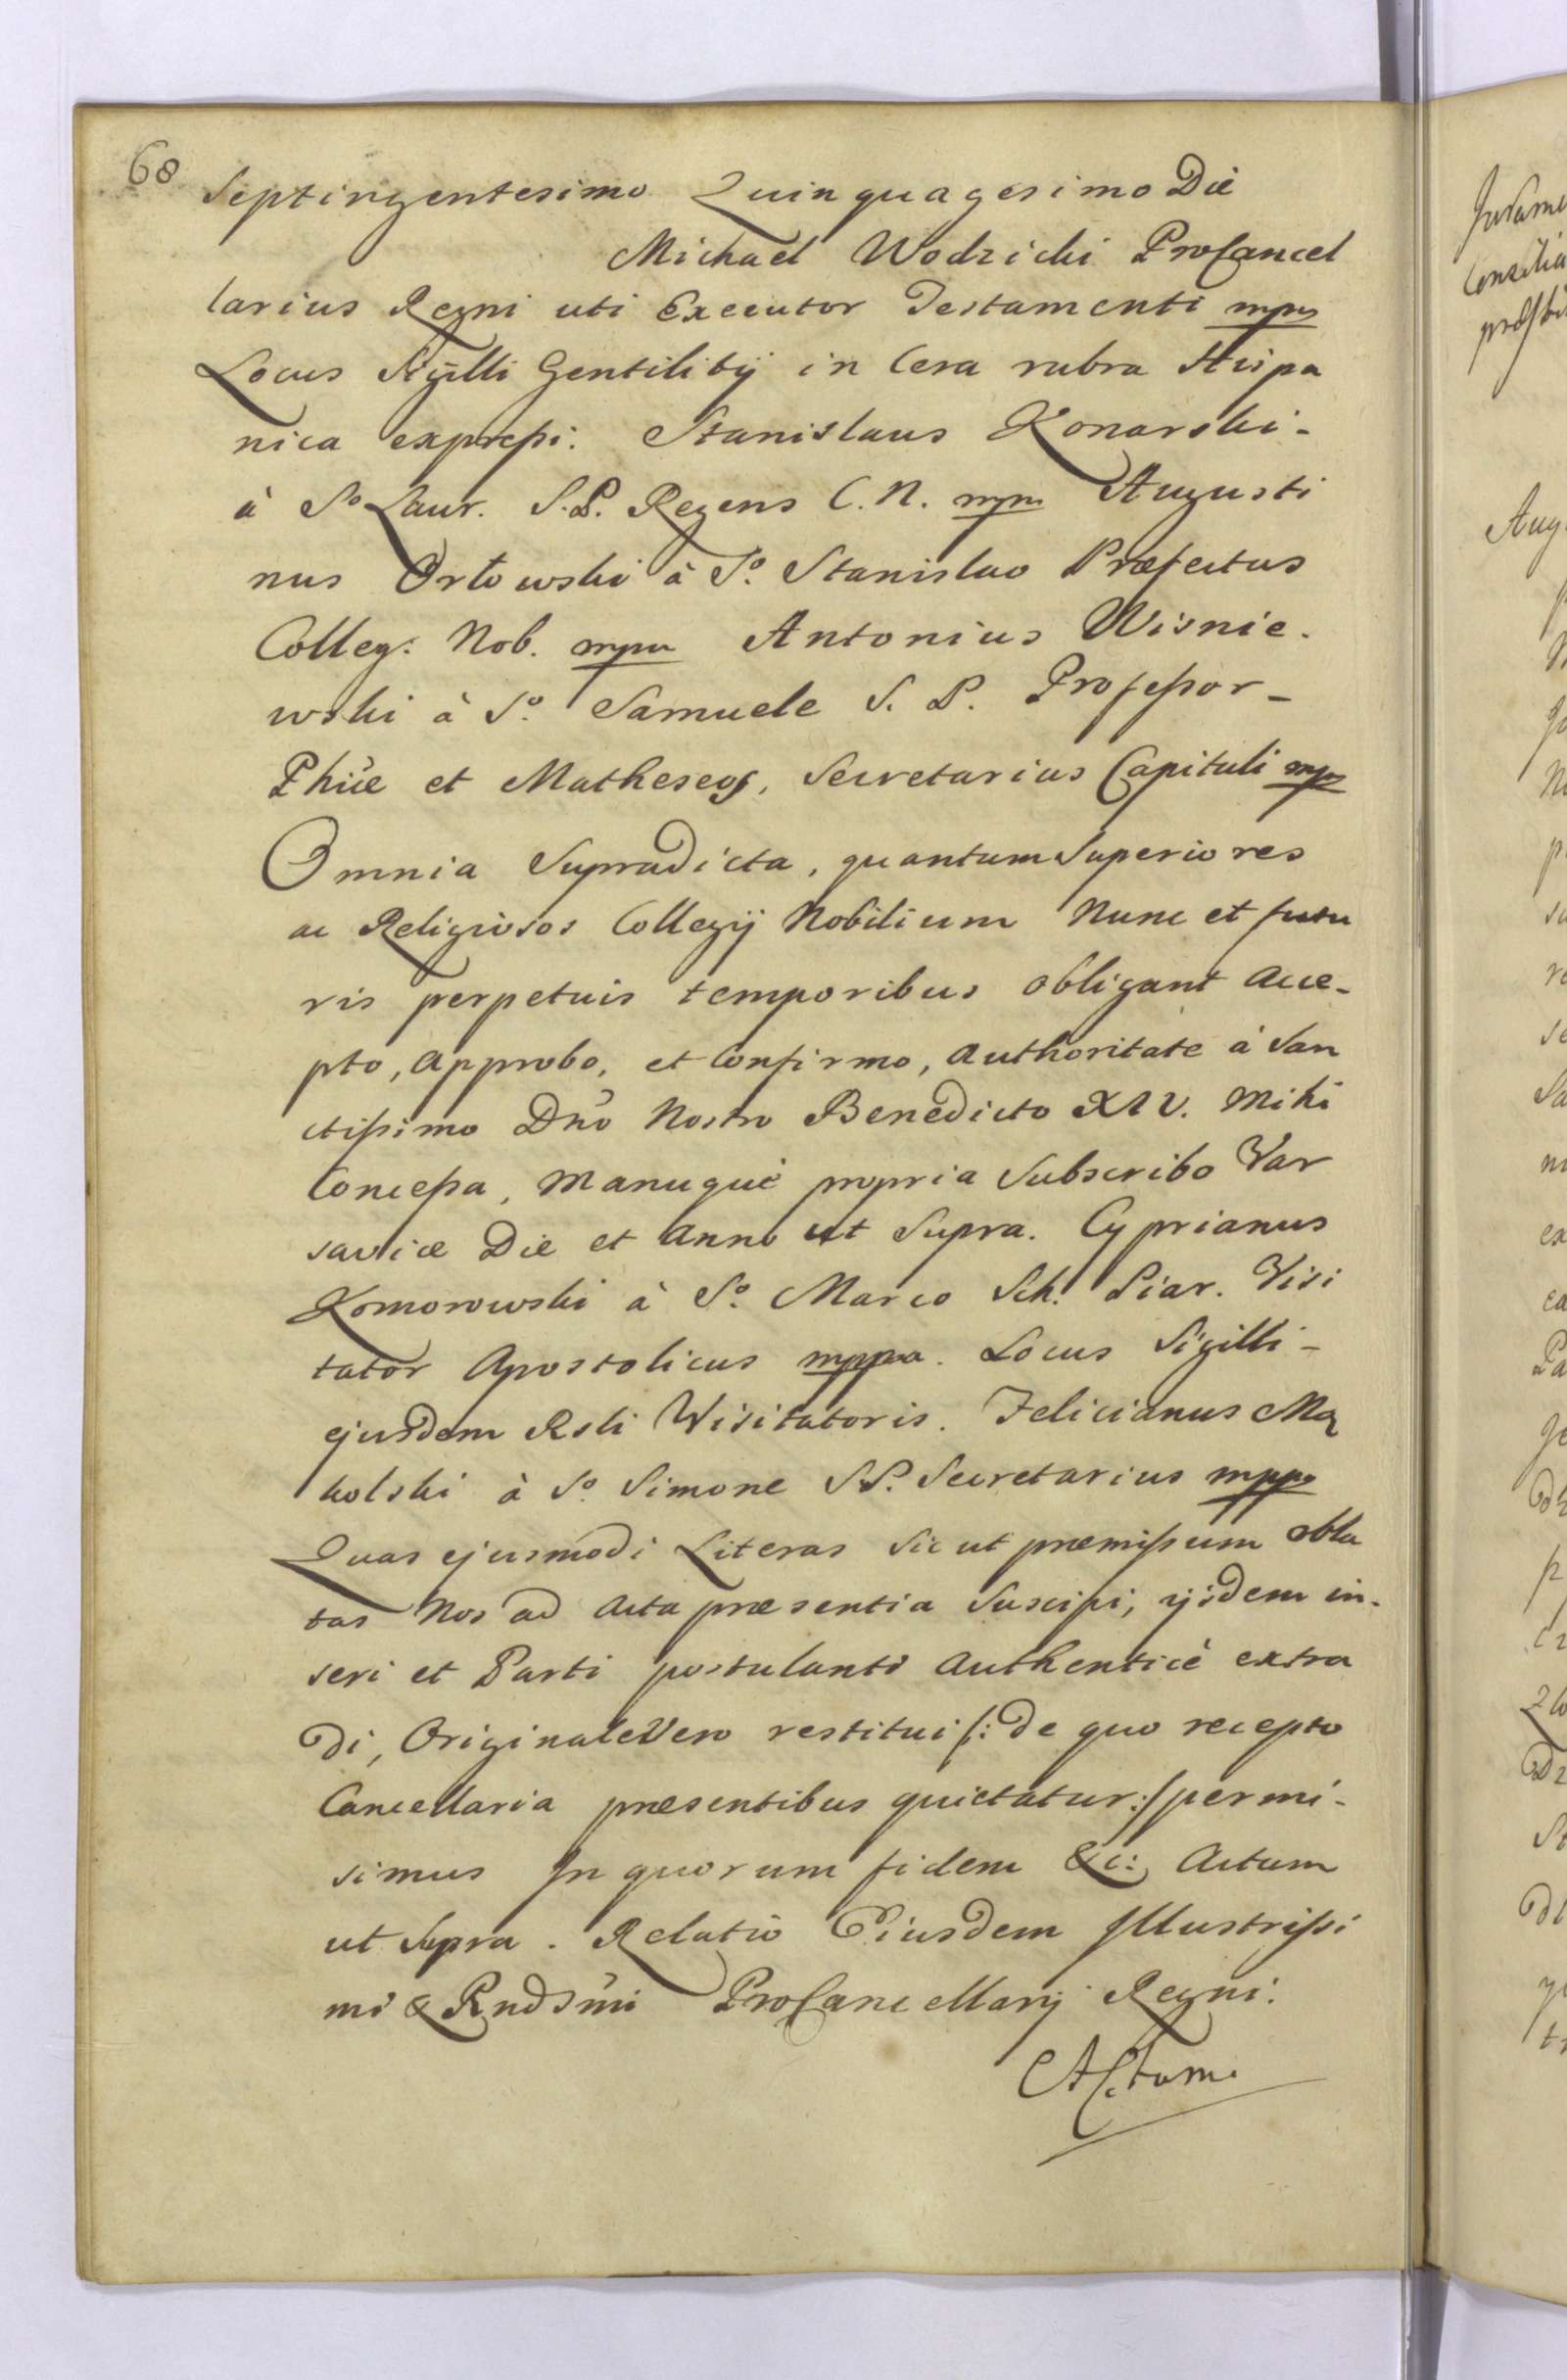 68
Septingentesimo Quinquagesimo Die
Michael Wodzicki ProCancel
larius Regni uti Executor Testamenti mpp
Locus Sigilli Gentilitij in Cera rubra Hispa
nica expressi. Stanislaus Konarski -
à So Laur. S. P. Regens C. N. mpp Augusti
nus Orłowski à So. Stanislao Præfectus
Colleg: Nob. mpp Antonius Wisnie -
wski à So. Samuele S. P. Professor -
Phiæ et Matheseos, Secretarius Capituli mpp
Omnia Supradicta, quantum Superiores
ac Religiosos Collegij Nobilium Nunc et futu
ris perpetuis temporibus obligant acce -
pto, approbo, et Confirmo, authoritate à San
ctissimo Dno Nostro Benedicto XIV. mihi
Concessa, manuquè propria Subscribo Var
saviæ Die et anno ut Supra. Cyprianus
Komorowski à So. Marco Sch: Piar. Visi
tator Apostolicus mppa. Locus Sigilli -
ejusdem Rsli Wisitatoris. Felicianus Ma
kolski à So. Simone S.P. Secretarius mppa
Quas ejusmodi Literas Sic ut præmissum obla
tas Nos ad Acta præsentia Suscipi, ijsdem in -
seri et Parti postulanti authenticè extra
di, Originale Vero restitui /: de quo recepto
Cancellaria præsentibus quietatur :/ permi -
simus In quorum fidem &c: Actum
ut Supra. Relatio Eiusdem Illustrissi
mi & Rndsmi ProCancellarij Regni.
Actum.
Jurame
Consilia
Aug